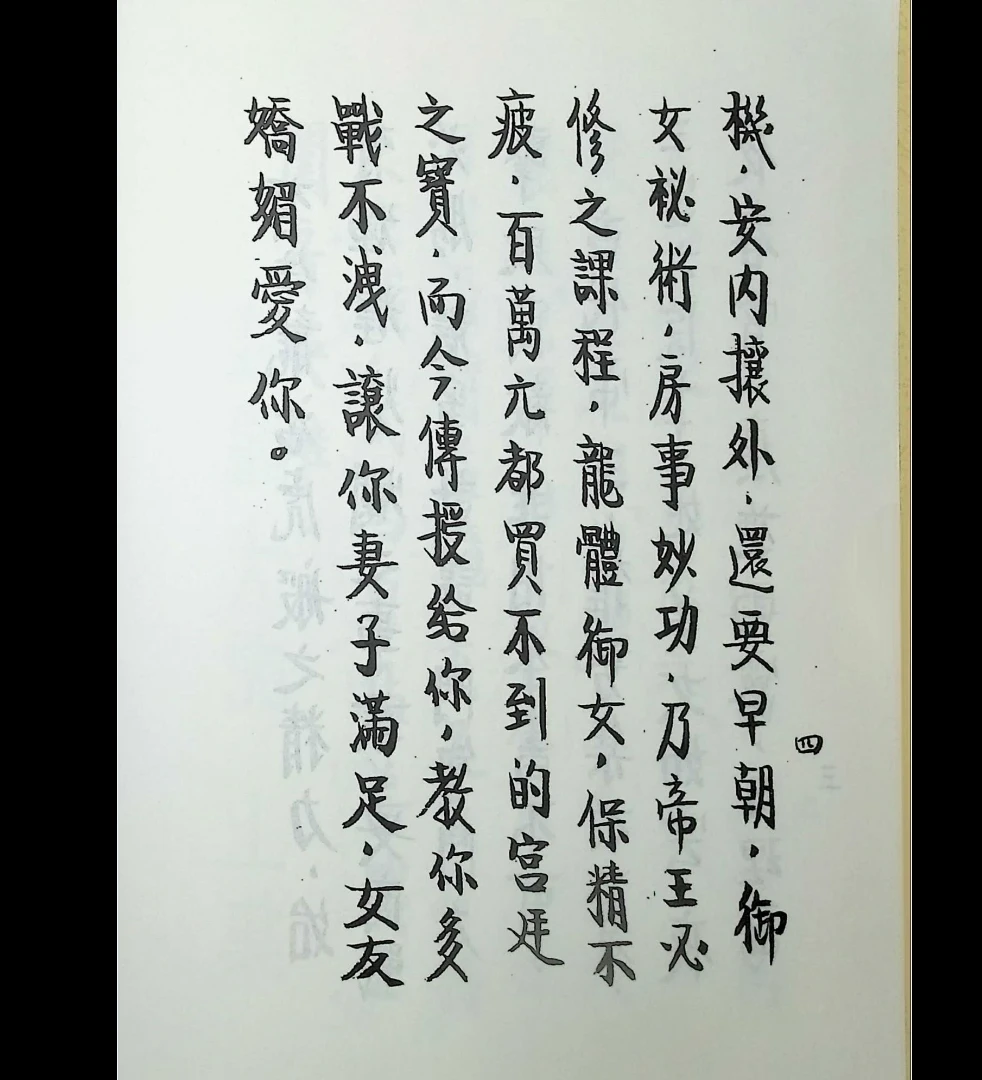 四
機，安內攘外，還要早朝，御
女祕術，房事妙功，乃帝王必
修之課程，龍體御女，保精不
疲，百萬元都買不到的宮廷
之寶，而今傳授給你，教你多
戰不洩，讓你妻子滿足，女友
嬌媚愛你。